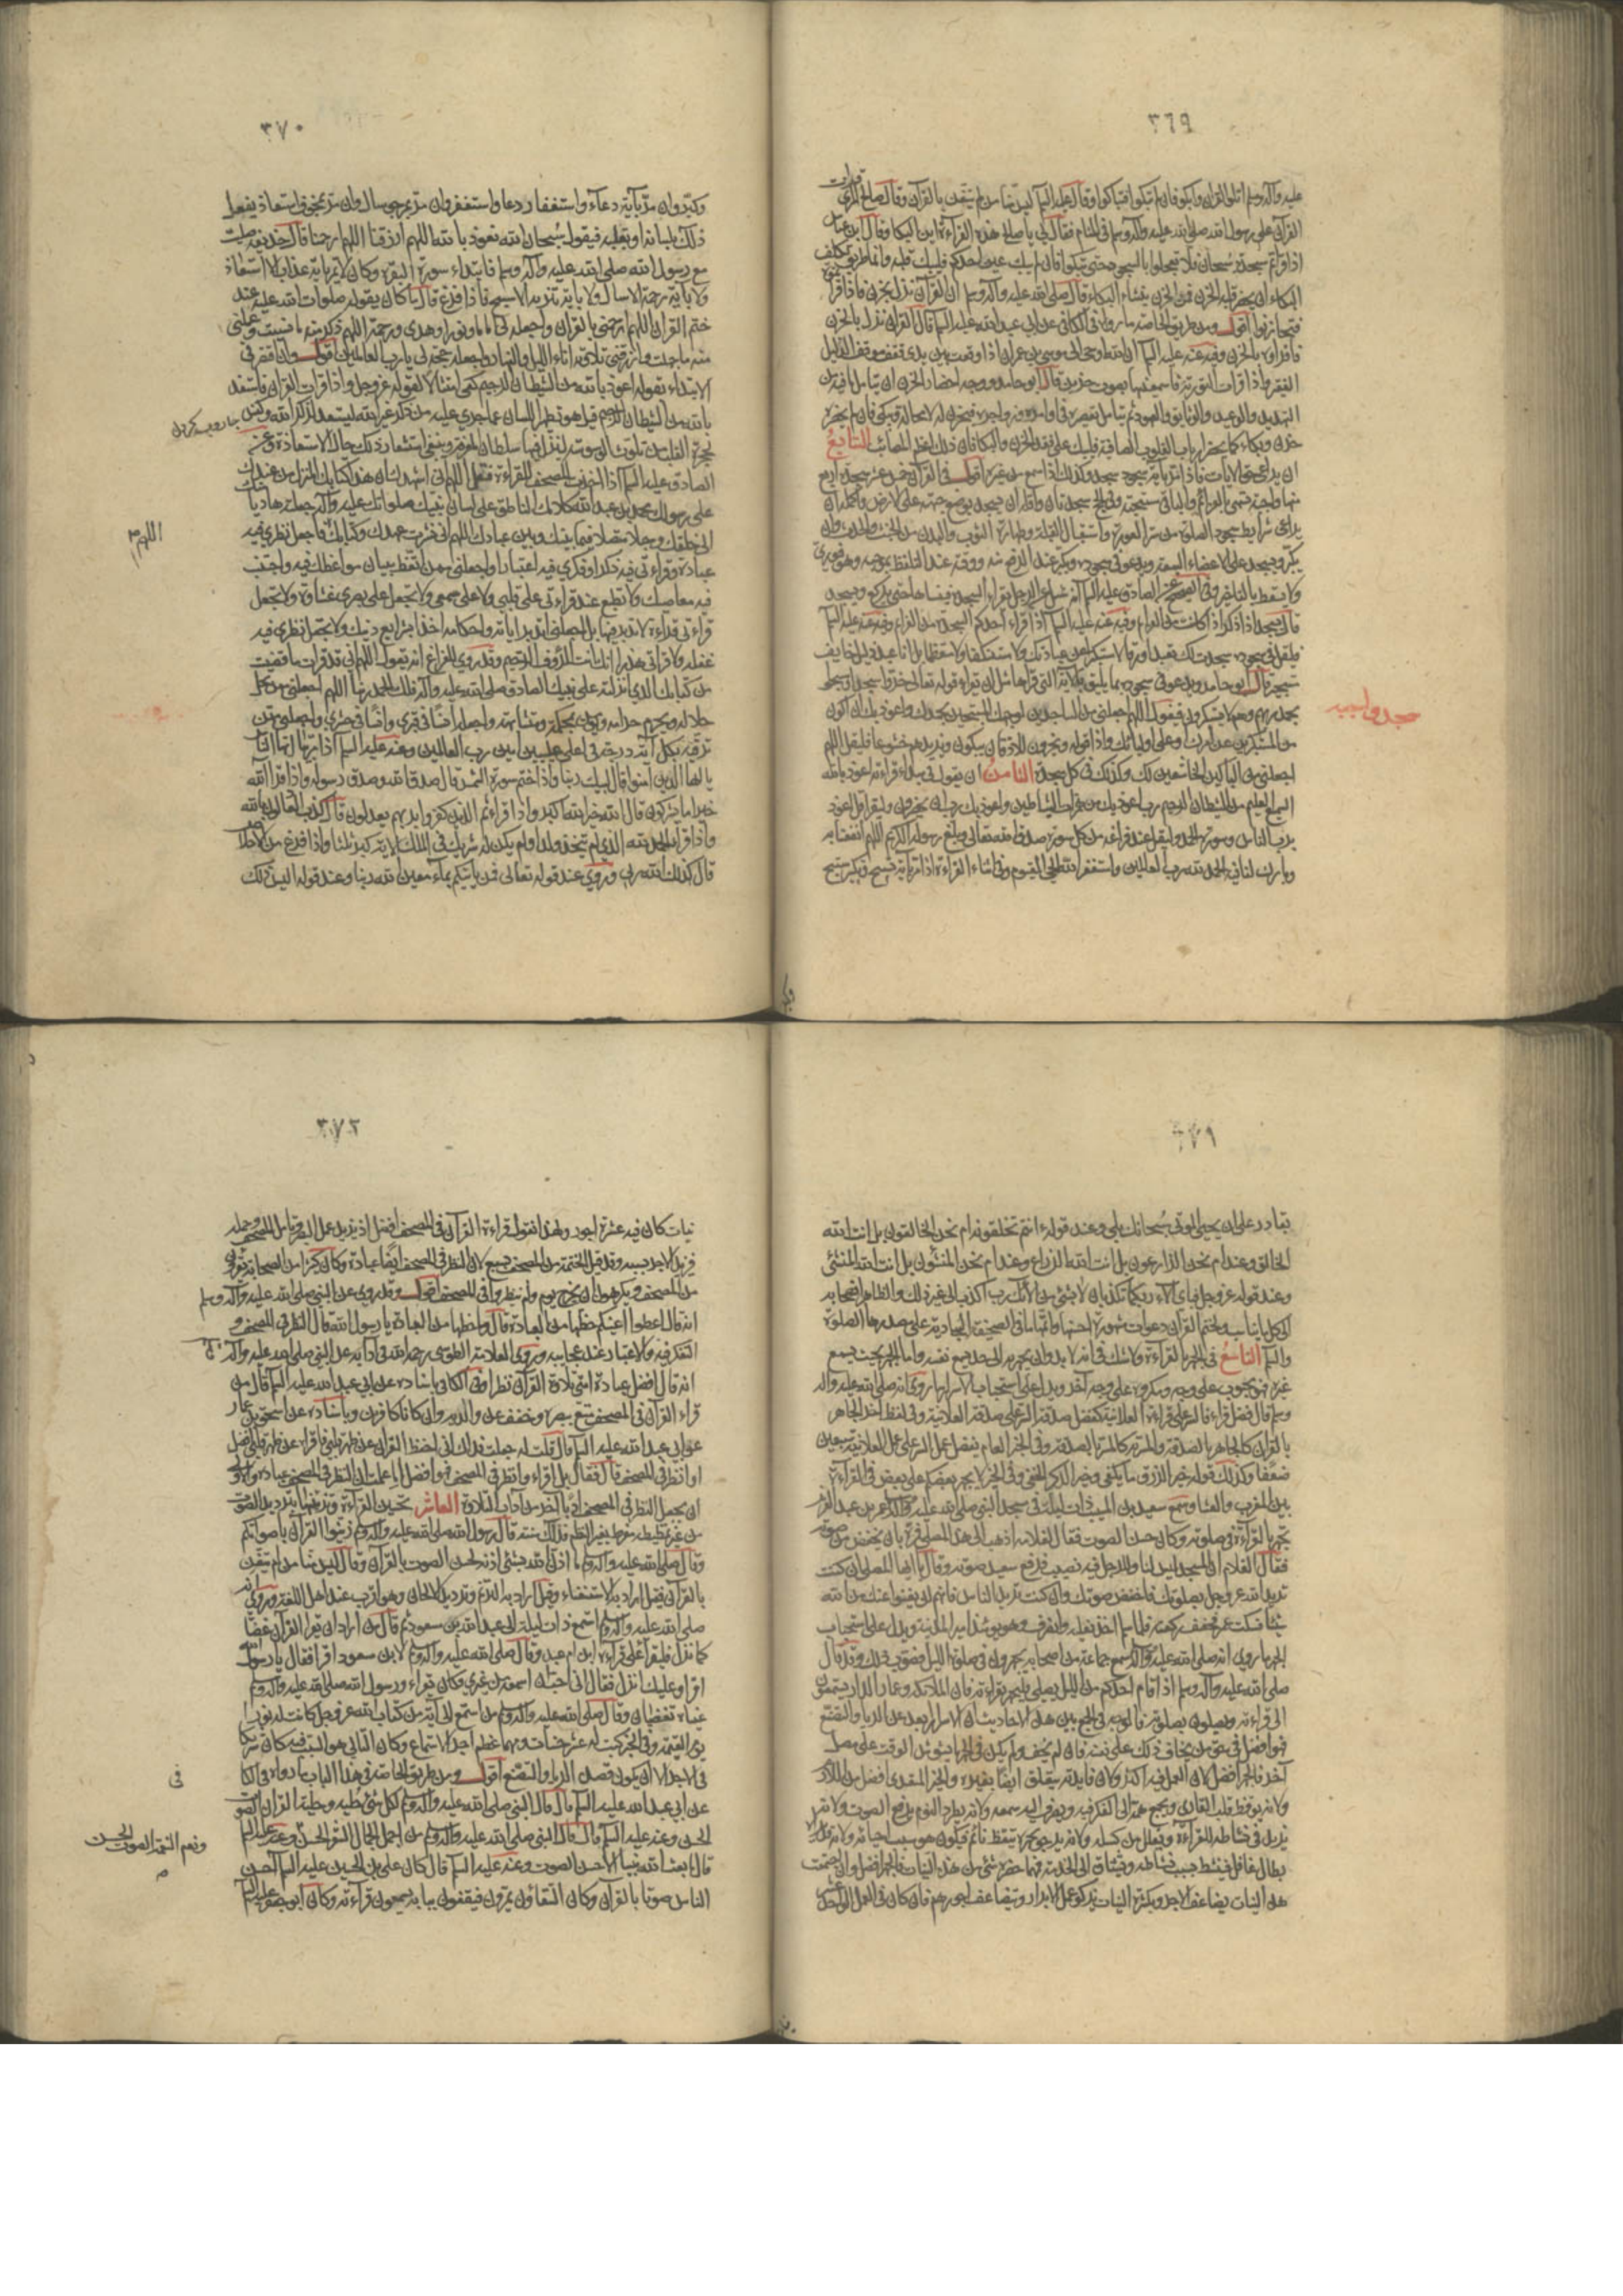 ٣٦٩
عليه وآله وسلم اتلوا القرآن وابكوا فان لم تبكوا فتباكوا وقال عليه السلم ليس منا من لم يتغن بالقرآن وقال صالح المري قرأت
القرآن على رسول الله صلى الله عليه وآله وسلم في المنام فقال لي يا صالح هذه القراءة فأين البكاء وقال ابن عباس
اذا قرأتم سجدة سبحان فلا تعجلوا بالسجود حتى تبكوا فان لم تبك عين احدكم فليبك قلبه وانما طريق تكلف
البكاء ان يحضر قلبه الحزن فمن الحزن ينشاء البكاء قال صلى الله عليه وآله وسلم ان القرآن نزل بحزن فاذا قرأتموه
فتحازنوا اقول ومن طريق الخاصة ما رواه في الكافي عن ابي عبد الله عليه السلم قال القرآن نزل بالحزن
فاقرأوه بالحزن وفيه عنه عليه السلم ان الله اوحى الى موسى بن عمران اذا وقفت بين يدي فقف موقف الذليل
الفقير واذا قرأت التورية فاسمعنيها بصوت حزين قال ابو حامد ووجه احضار الحزن ان يتأمل ما فيه من
التهديد والوعيد والوثايق والعهود ثم يتأمل تقصيره في اوامره وزواجره فيحزن له لا محالة ويبكي فان لم يحضره
حزن وبكاء كما يحضر ارباب القلوب الصافية فليبك على فقد الحزن والبكاء فان ذلك اعظم المصائب السابع
ان يراعي حق الآيات فاذا مر بآية سجود سجد وكذلك اذا سمع من غيره اقول في القرآن خمس عشر سجدة اربع
منها واجبة تسمى بالعزائم والباقي مستحبة وفي الحج سجدتان واقله ان يسجد بوضع جبهته على الارض واكمله ان
يراعي شرايط سجود الصلوة من ستر العورة واستقبال القبلة وطهارة الثوب والبدن من الخبث والحدث وان
يكبر ويسجد على الاعضاء السبعة ويدعو في سجوده ويكبر عند الرفع منه ووقته عند التلفظ بموجبه وهو فوري
ولا يسقط بالتأخير وفي الصحيح عن الصادق عليه السلم انه سئل عن الرجل يقرأ السجدة فينساها حتى يركع ويسجد
قال يسجد اذا ذكر اذا كانت من العزائم وفيه عنه عليه السلم اذا قرأ احدكم السجدة من العزائم وفيه عنه عليه السلم
فليقل في سجوده سجدت لك تعبدا ورقا لا مستكبرا عن عبادتك ولا مستنكفا ولا مستعظما بل انا عبد ذليل خايف
مستجير قال ابو حامد ويدعو في سجوده بما يليق بالآية التي قرأها مثل ان يقرأ قوله تعالى خروا سجدا وسبحوا
بحمد ربهم وهم لا يستكبرون فيقول اللهم اجعلني من الساجدين لوجهك المسبحين بحمدك واعوذ بك ان اكون
من المستكبرين عن امرك وعلى اوليائك واذا قرأ قوله ويخرون للاذقان يبكون ويزيدهم خشوعا فليقل اللهم
اجعلني من الباكين الخاشعين لك وكذلك في كل سجدة الثامن ان يقول في مبتداء قراءته اعوذ بالله
السميع العليم من الشيطان الرجيم رب اعوذ بك من همزات الشياطين واعوذ بك رب ان يحضرون وليقرأ قل اعوذ
برب الناس وسورة الحمد وليقل عند فراغه من كل سورة صدق الله تعالى وبلغ رسوله الكريم اللهم انفعنا به
وبارك لنا فيه الحمد لله رب العالمين واستغفر الله الحي القيوم وفي اثناء القراءة اذا مر بآية تسبيح وتكبير سبح
٣٧٠
وكبر وان مر بآية دعاء واستغفار دعا واستغفر وان مر بمرجو سال وان مر بمخوف استعاذ يفعل
ذلك بلسانه او بقلبه فيقول سبحان الله نعوذ بالله اللهم ارزقنا اللهم ارحمنا قال حذيفة صليت
مع رسول الله صلى الله عليه وآله وسلم فابتداء سورة البقرة وكان لا يمر بآية عذاب الا استعاذ
ولا بآية رحمة الا سال ولا بآية تنزيه الا سبح فاذا فرغ قال ما كان يقوله صلوات الله عليه عند
ختم القرآن اللهم ارحمني بالقرآن واجعله لي اماما ونورا وهدى ورحمة اللهم ذكرني منه ما نسيت وعلمني
منه ما جهلت وارزقني تلاوته اناء الليل والنهار واجعله حجة لي يا رب العالمين اقول وان اقتصر في
الابتداء بقوله اعوذ بالله من الشيطان الرجيم كفى امتثالا لقوله عز وجل واذا قرأت القرآن فاستعذ
بالله من الشيطان الرجيم قيل هو تطهير اللسان عما جرى عليه من ذكر غير الله ليستعد لذكر الله
الصادق عليه السلم اذا اخذت المصحف للقراءة فقل اللهم اني اشهد ان هذا كتابك المنزل من عندك
على رسولك محمد بن عبد الله كلامك الناطق على لسان نبيك صلواتك عليه وآله جعلته هاديا
الى خلقك وحبلا متصلا فيما بينك وبين عبادك اللهم اني نشرت عهدك وكتابك فاجعل نظري فيه
اللهم
عبادة وقراءتي فيه ذكرا وفكري فيه اعتبارا واجعلني ممن اتعظ ببيان مواعظك فيه واجتنب
فيه معاصيك ولا تطبع عند قراءتي على قلبي ولا على سمعي ولا تجعل على بصري غشاوة ولا تجعل
قراءتي قراءة لا تدبر فيها بل اجعلني اتدبر اياته واحكامه اخذا بشرايع دينك ولا تجعل نظري فيه
غفلة ولا قراءتي هذرا انك انت الرؤف الرحيم وقد روي للفراغ انه يقول اللهم اني قد قرأت ما قضيت
من كتابك الذي انزلته على نبيك الصادق صلى الله عليه وآله فلك الحمد ربنا اللهم اجعلني ممن يحل
حلاله ويحرم حرامه ويؤمن بمحكمه ومتشابهه واجعله انسا في قبري وانسا في حشري واجعلني ممن
ترقيه بكل آية درجة في اعلى عليين امين رب العالمين وعنه عليه السلم اذا
يا ايها الذين آمنوا قال لبيك ربنا واذا ختم سورة الشمس قال صدق الله وصدق رسوله واذا قرأ آلله
خير اما يشركون قال الله خير الله اكبر واذا قرأ ثم الذين كفروا بربهم يعدلون قال كذب العادلون بالله
واذا قرأ الحمد لله الذي لم يتخذ ولدا ولم يكن له شريك في الملك الآية كبر ثلثا واذا فرغ من الاخلاص
قال كذلك الله ربي وروي عند قوله تعالى فمن يأتيكم بماء معين الله ربنا وعند قوله اليس ذلك
٣٧١
بقادر على ان يحيي الموتى سبحانك بلى وعند قوله ءانتم تخلقونه ام نحن الخالقون بل انت الله
الخالق وعند ام نحن الزارعون بل انت الله الزارع وعند ام نحن المنشئون بل انت الله المنشئ
وعند قوله عز وجل فبأي آلاء ربكما تكذبان لا بشئ من آلائك رب اكذب الى غير ذلك
ولختم القرآن دعوات مشهورة احسنها واتمها ما في الصحيفة السجادية على صدرها الصلوة
والسلم التاسع في الجهر بالقراءة ولا شك في انه لا بد وان يجهر به الى حد يسمع نفسه واما الجهر بحيث يسمع
غيره فهو محبوب على وجه ومكروه على وجه آخر ويدل على استحباب الاسرار ما روي انه صلى الله عليه وآله
وسلم قال فضل قراءة السر على قراءة العلانية كفضل صدقة السر على صدقة العلانية وفي لفظ آخر الجاهر
بالقرآن كالجاهر بالصدقة والمسر به كالمسر بالصدقة وفي الخبر العام يفضل عمل السر على عمل العلانية سبعين
ضعفا وكذلك قوله خير الرزق ما يكفي وخير الذكر الخفي وفي الخبر لا يجهر بعضكم على بعض في القراءة
بين المغرب والعشاء وسمع سعيد بن المسيب ذات ليلة في مسجد النبي صلى الله عليه وآله عمر بن عبد العزيز
يجهر بالقراءة في صلوته وكان حسن الصوت فقال لغلامه اذهب الى هذا المصلي فمره بان يخفض من صوته
فقال الغلام ان المسجد ليس لنا وللرجل فيه نصيب فرفع سعيد صوته وقال يا ايها المصلي ان كنت
تريد الله عز وجل بصلوتك فاخفض صوتك وان كنت تريد الناس فانهم لن يغنوا عنك من الله
شيئا فسكت عمر فخفف ركعته فلما سلم اخذ نعليه وانصرف وهو يومئذ امير المدينة ويدل على استحباب
الجهر ما روي انه صلى الله عليه وآله سمع جماعة من اصحابه يجهرون في صلوة الليل فصوب ذلك وقد قال
صلى الله عليه وآله وسلم اذا قام احدكم من الليل يصلي فليجهر بقراءته فان الملائكة وعمار الدار يستمعون
الى قراءته ويصلون بصلوته فالوجه في الجمع بين هذه الاحاديث ان الاسرار ابعد عن الريا والتصنع
فهو افضل في حق من يخاف ذلك على نفسه فان لم يخف ولم يكن في الجهر ما يشوش الوقت على مصل
آخر فالجهر افضل لان العمل فيه اكثر ولان فايدته يتعلق ايضا بغيره والخير المتعدي افضل من اللازم
ولانه يوقظ قلب القاري ويجمع همه الى الفكر فيه ويصرف اليه سمعه ولانه يطرد النوم برفع الصوت ولانه
يزيد في نشاطه للقراءة ويقلل من كسله ولانه يرجو بجهره تيقظ نائم فيكون هو سبب احيائه ولانه قد يراه
بطال غافل فينشط بسبب نشاطه ويشتاق الى الخدمة فمهما حضره شئ من هذه النيات فالجهر افضل وان اجتمعت
هذه النيات يضاعف الاجر وبكثرة النيات يزكو عمل الابرار ويتضاعف اجورهم فان كان في العمل الواحد عشر
٣٧٢
نيات كان فيه عشرة اجور ولهذا نقول قراءة القرآن في المصحف افضل اذ يزيد عمل البصر وتأمل المصحف وحمله
فيزيد الاجر بسببه وقد قيل الختمة من المصحف بسبع لان النظر في المصحف ايضا عبادة وكان كثير من الصحابة يقرؤن
من المصحف ويكرهون ان يخرج يوم ولم ينظروا في المصحف اقول وقد روي عن النبي صلى الله عليه وآله وسلم
انه قال اعطوا اعينكم حظها من العبادة قال وما حظها من العبادة يا رسول الله قال النظر في المصحف و
التفكر فيه والاعتبار عند عجايبه وروى العلامة الطوسي رحمه الله في آدابه عن النبي صلى الله عليه وآله
انه قال افضل عبادة امتي تلاوة القرآن نظرا وفي الكافي باسناده عن ابي عبد الله عليه السلم قال من
قرأ القرآن في المصحف متع ببصره وخفف عن والديه وان كانا كافرين وباسناده عن اسحق بن عمار
عن ابي عبد الله عليه السلم قال قلت له جعلت فداك اني احفظ القرآن عن ظهر قلبي فاقرأه عن ظهر قلبي افضل
او انظر في المصحف قال فقال بل اقرأه وانظر في المصحف فهو افضل اما علمت ان النظر في المصحف عبادة
العاشر تحسين القراءة وتزيينها بترديد الصوت
من غير تمطيط مفرط يغير النظم فذلك سنة قال رسول الله صلى الله عليه وآله وسلم زينوا القرآن باصواتكم
وقال صلى الله عليه وآله وسلم ما اذن الله لشئ اذنه لحسن الصوت بالقرآن وقال ليس منا من لم يتغن
بالقرآن فقيل اراد به الاستغناء وقيل اراد به الترنم وترديد الالحان وهو اقرب عند اهل اللغة وروي انه
صلى الله عليه وآله وسلم استمع ذات ليلة الى عبد الله بن مسعود ثم قال من اراد ان يقرأ القرآن غضا
كما نزل فليقرأ على قراءة ابن ام عبد وقال صلى الله عليه وآله وسلم لابن مسعود اقرأ فقال يا رسول الله
اقرأ وعليك انزل فقال اني احب ان اسمعه من غيري وكان يقرأ ورسول الله صلى الله عليه وآله وسلم
عيناه تفيضان وقال صلى الله عليه وآله وسلم من استمع الى آية من كتاب الله عز وجل كانت له نورا
يوم القيمة وفي الخبر كتب له عشر حسنات ومهما عظم اجر الاستماع وكان التالي هو السبب فيه كان شريكا
في الاجر الا ان يكون قصده الريا والتصنع اقول ومن طريق الخاصة في هذا الباب ما رواه في الكافي
في
عن ابي عبد الله عليه السلم قال قال النبي صلى الله عليه وآله وسلم لكل شئ حلية وحلية القرآن الصوت
الحسن وعنه عليه السلم قال قال النبي صلى الله عليه وآله وسلم من اجمل الجمال الشعر الحسن
ونغم النغمة الصوت الحسن
قال ما بعث الله نبيا الا حسن الصوت وعنه عليه السلم قال كان علي بن الحسين عليه السلم احسن
الناس صوتا بالقرآن وكان السقاؤن يمرون فيقفون ببابه يسمعون قراءته وكان ابو جعفر عليه السلم